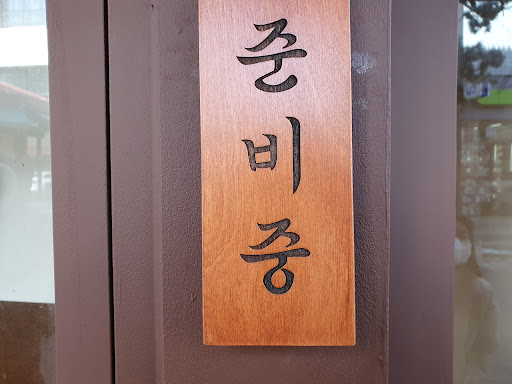 준비중